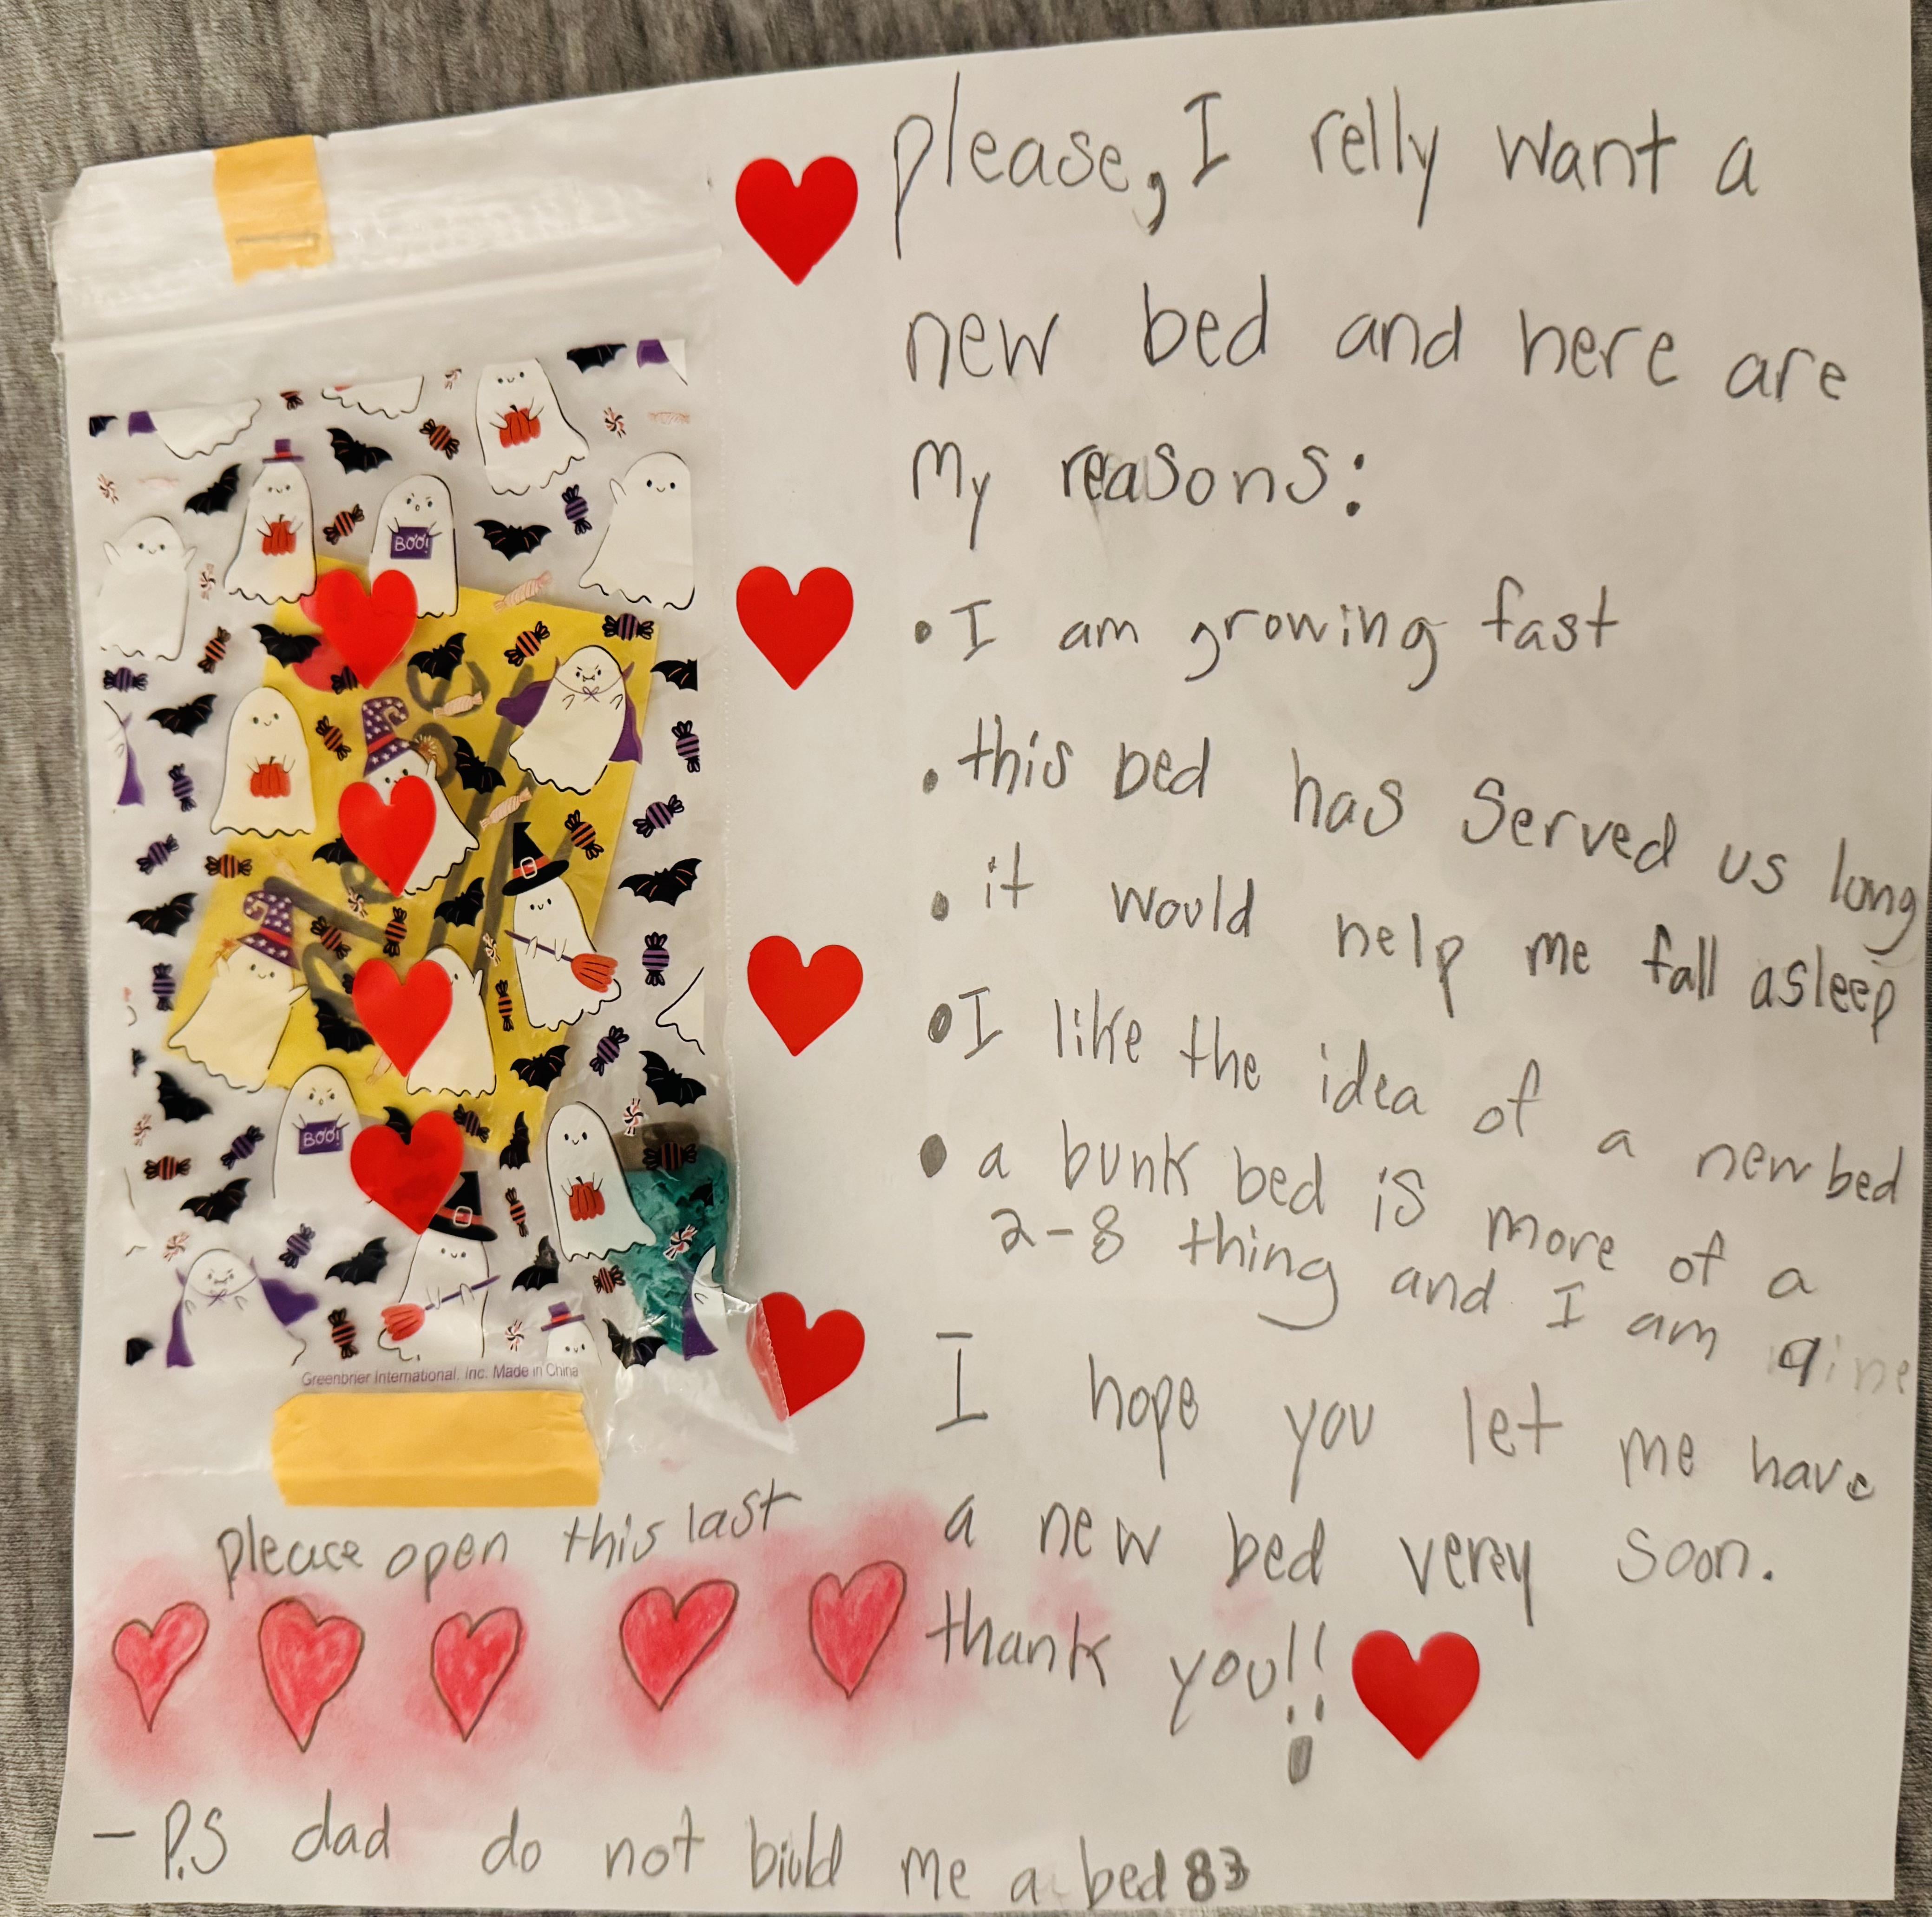 please, I relly want a
new bed and here are
my reasons:
• I am growing fast
• this bed has served us long
• it would help me fall asleep
• I like the idea of a new bed
• a bunk bed is more of a
2-8 thing and I am 9ine
I hope you let me have
a new bed very soon.
thank you!!
BOO!
BOO!
Greenbrier International, Inc. Made in China
please open this last
- P.S dad do not biuld me a bed 83